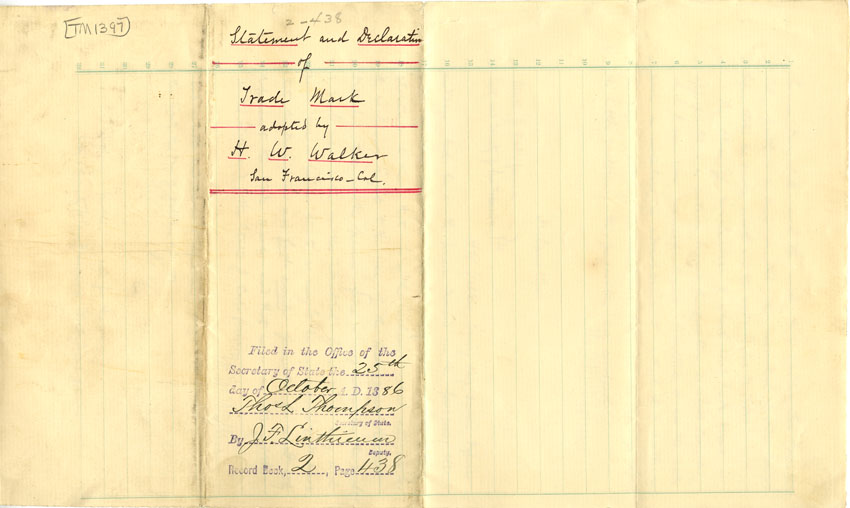 [TM1397]
2-438
Statement and Declaration
of
Trade Mark
adopted by
H. W. Walker
San Francisco - Cal.
Filed in the Office of the
Secretary of State the 25th
day of October A. D. 1886
Thos L. Thompson
Secretary of State.
By J. F. Linthicum
Deputy.
Record Book, 2, Page 438